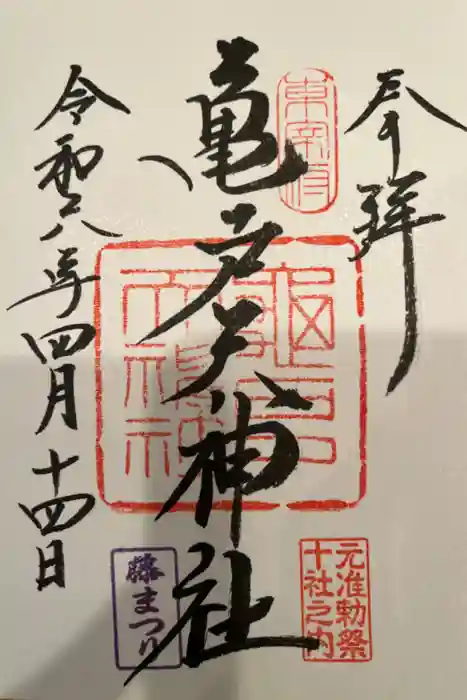 奉拝
東宰府
亀戸天神社
元准勅祭
十社之内
令和六年四月十四日
藤まつり